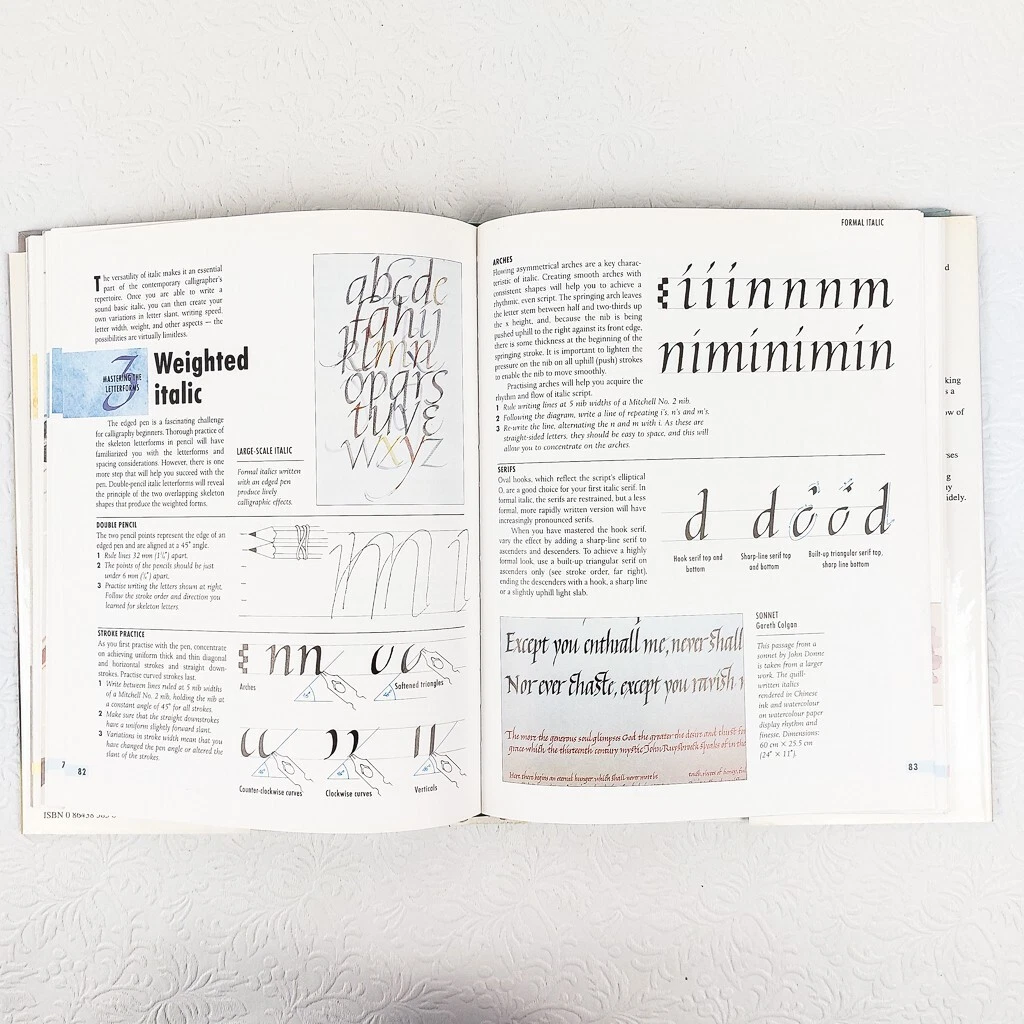 The versatility of italic makes it an essential
part of the contemporary calligrapher's
repertoire. Once you are able to write a
sound basic italic, you can then create your
own variations in letter slant, writing speed,
letter width, weight, and other aspects — the
possibilities are virtually limitless.
3
MASTERING THE
LETTERFORMS
Weighted
italic
The edged pen is a fascinating challenge
for calligraphy beginners. Thorough practice of
the skeleton letterforms in pencil will have
familiarized you with the letterforms and
spacing considerations. However, there is one
more step that will help you succeed with the
pen. Double-pencil italic letterforms will reveal
the principle of the two overlapping skeleton
shapes that produce the weighted forms.
abcde
fghij
klmn
opqrs
tuvε
wxyz
LARGE-SCALE ITALIC
Formal italics written
with an edged pen
produce lively
calligraphic effects.
DOUBLE PENCIL
The two pencil points represent the edge of an
edged pen and are aligned at a 45° angle.
1 Rule lines 32 mm (1¼") apart.
2 The points of the pencils should be just
under 6 mm (¼") apart.
3 Practise writing the letters shown at right.
Follow the stroke order and direction you
learned for skeleton letters
m
STROKE PRACTICE
As you first practise with the pen, concentrate
on achieving uniform thick and thin diagonal
and horizontal strokes and straight down-
strokes. Practise curved strokes last.
1 Write between lines ruled at 5 nib widths
of a Mitchell No. 2 nib, holding the nib at
a constant angle of 45° for all strokes.
2 Make sure that the straight downstrokes
have a uniform slightly forward slant.
3 Variations in stroke width mean that you
have changed the pen angle or altered the
slant of the strokes.
nn
Arches
Softened triangles
Counter-clockwise curves
Clockwise curves
Verticals
7
82
ISBN 0 86438
FORMAL ITALIC
ARCHES
Flowing asymmetrical arches are a key charac-
teristic of italic. Creating smooth arches with
consistent shapes will help you to achieve a
rhythmic, even script. The springing arch leaves
the letter stem between half and two-thirds up
the x height, and, because the nib is being
pushed uphill to the right against its front edge,
there is some thickness at the beginning of the
springing stroke. It is important to lighten the
pressure on the nib on all uphill (push) strokes
to enable the nib to move smoothly.
Practising arches will help you acquire the
rhythm and flow of italic script.
1 Rule writing lines at 5 nib widths of a Mitchell No. 2 nib.
2 Following the diagram, write a line of repeating i's, n's and m's.
3 Re-write the line, alternating the n and m with i. As these are
straight-sided letters, they should be easy to space, and this will
allow you to concentrate on the arches.
ííínnnm
nímínímín
SERIFS
Oval hooks, which reflect the script's elliptical
O, are a good choice for your first italic serif. In
formal italic, the serifs are restrained, but a less
formal, more rapidly written version will have
increasingly pronounced serifs.
When you have mastered the hook serif,
vary the effect by adding a sharp-line serif to
ascenders and descenders. To achieve a highly
formal look, use a built-up triangular serif on
ascenders only (see stroke order, far right),
ending the descenders with a hook, a sharp line
or a slightly uphill light slab.
d
d
d
Hook serif top and
bottom
Sharp-line serif top
and bottom
Built-up triangular serif top,
sharp line bottom
Except you enthrall me, never shall
Nor ever chaste, except you ravish
The more the generous soul glimpses God the greater the desire and thirst fo
grace which the thirteenth century mystic John Ruysbroeck speaks of in th
Here there begins an eternal hunger which shall never more be
SONNET
Gareth Colgan
This passage from a
sonnet by John Donne
is taken from a larger
work. The quill-
written italics
rendered in Chinese
ink and watercolour
on watercolour paper
display rhythm and
finesse. Dimensions:
60 cm × 25.5 cm
(24" × 11").
83